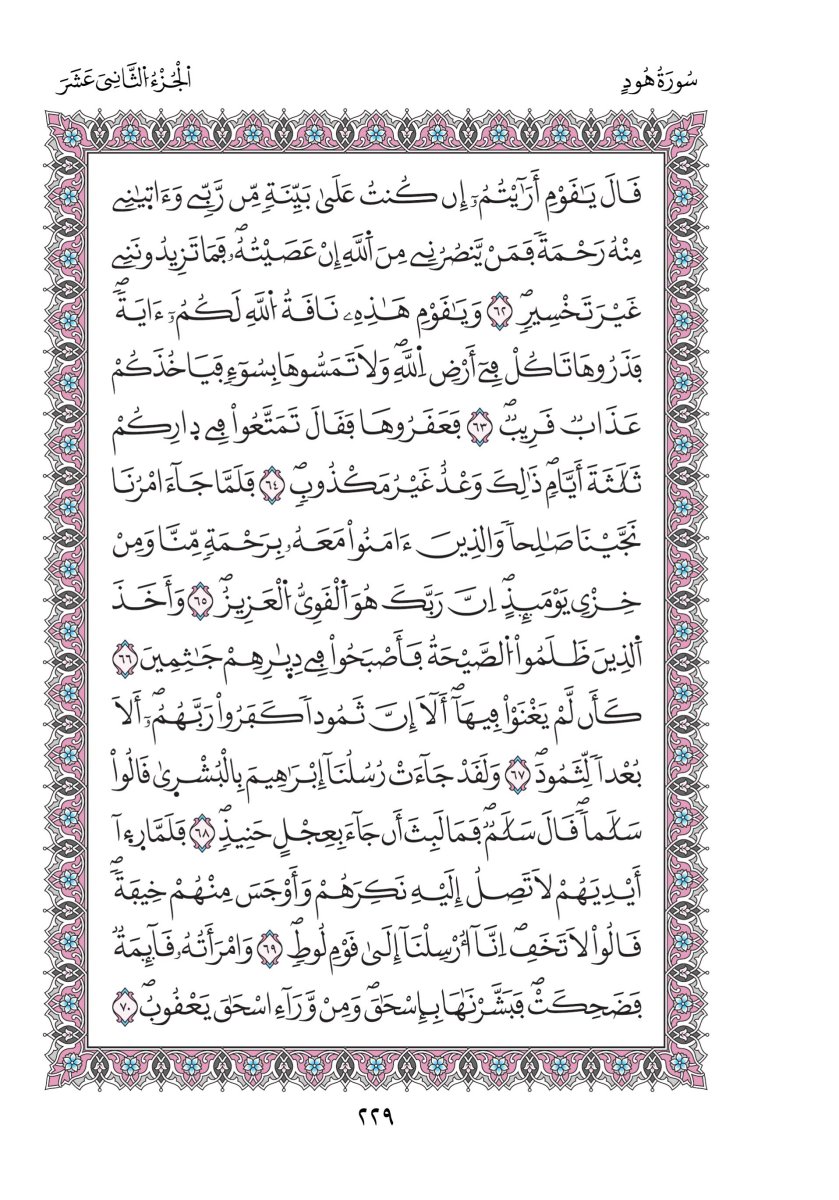 سُورَةُ هُودٍ
اَلْجُزْءُ اُلثَّانِيَ عَشَرَ
قَالَ يَٰقَوْمِ أَرَٰٓيْتُمُۥٓ إِن كُنتُ عَلَىٰ بَيِّنَةٍ مِّن رَّبِّے وَءَاتٜيٰنِے
مِنْهُ رَحْمَةً فَمَنْ يَّنصُرُنِے مِنَ اَ۬للَّهِ إِنْ عَصَيْتُهُۥ فَمَا تَزِيدُونَنِے
غَيْرَ تَخْسِيرٍ ٦٢ وَيَٰقَوْمِ هَٰذِهِۦ نَاقَةُ اُ۬للَّهِ لَكُمُۥٓ ءَايَةً
فَذَرُوهَا تَاكُلْ فِےٓ أَرْضِ اِ۬للَّهِ وَلَا تَمَسُّوهَا بِسُوٓءٍ فَيَاخُذَكُمْ
عَذَابٌ قَرِيبٌ ٦٣ فَعَقَرُوهَا فَقَالَ تَمَتَّعُواْ فِے دِارِكُمْ
ثَلَٰثَةَ أَيَّامٍ ذَٰلِكَ وَعْدٌ غَيْرُ مَكْذُوبٍ ٦٤ فَلَمَّا جَآءَ امْرُنَا
نَجَّيْنَا صَٰلِحاً وَالذِينَ ءَامَنُواْ مَعَهُۥ بِرَحْمَةٍ مِّنَّا وَمِنْ
خِزْيِ يَوْمَئِذٍ اِنَّ رَبَّكَ هُوَ اَ۬لْقَوِيُّ اُ۬لْعَزِيزُ ٦٥ وَأَخَذَ
اَ۬لذِينَ ظَلَمُواْ اُ۬لصَّيْحَةُ فَأَصْبَحُواْ فِے دِيٰ۪رِهِمْ جَٰثِمِينَ ٦٦
كَأَن لَّمْ يَغْنَوْاْ فِيهَآ أَلَآ إِنَّ ثَمُوداً كَفَرُواْ رَبَّهُمُۥٓ أَلَا
بُعْداً لِّثَمُودَ ٦٧ وَلَقَدْ جَآءَتْ رُسُلُنَآ إِبْرَٰهِيمَ بِالْبُشْر۪يٰ قَالُواْ
سَلَٰماً قَالَ سَلَٰمٌ فَمَا لَبِثَ أَن جَآءَ بِعِجْلٍ حَنِيذٍ ٦٨ فَلَمَّا ر۪ء۪آ
أَيْدِيَهُمْ لَا تَصِلُ إِلَيْهِ نَكِرَهُمْ وَأَوْجَسَ مِنْهُمْ خِيفَةً
قَالُواْ لَا تَخَفِ اِنَّآ أُرْسِلْنَآ إِلَىٰ قَوْمِ لُوطٍ ٦٩ وَامْرَأَتُهُۥ قَآئِمَةٌ
فَضَحِكَتْ فَبَشَّرْنَٰهَا بِإِسْحَٰقَ وَمِنْ وَّرَآءِ اسْحَٰقَ يَعْقُوبُ ٧٠
٢٢٩